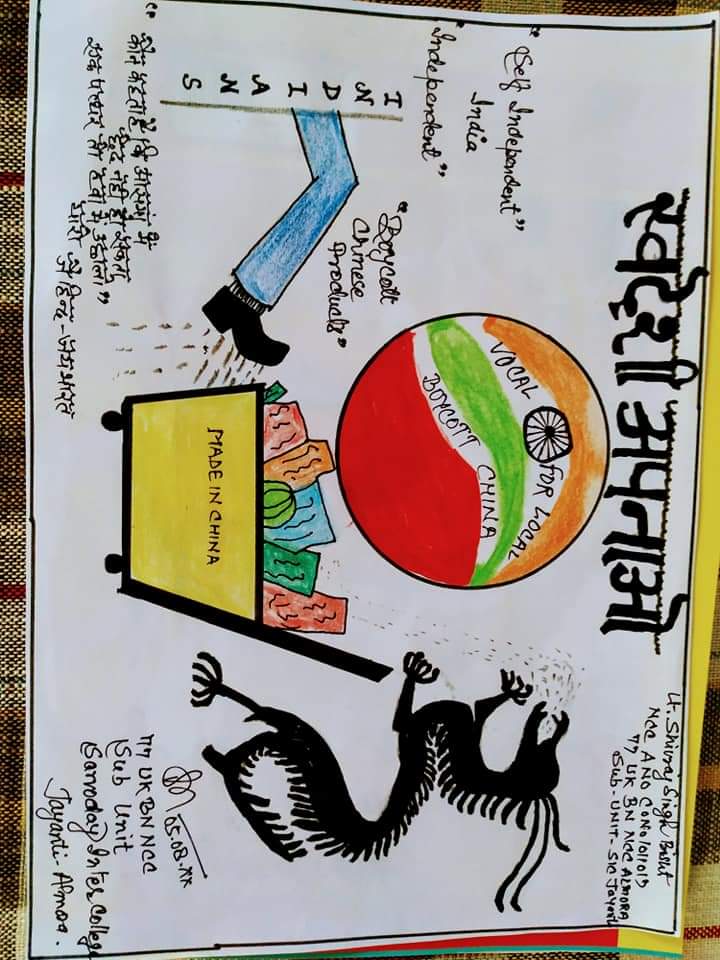 स्वदेशी अपनाओ
Lt. Shivraj Singh Bisht
NCC ANO
77 UK BN NCC ALMORA
Sub. UNIT - SIC Jayanti
"Self Independent"
India
"Independent"
VOCAL FOR LOCAL
BOYCOTT CHINA
"Boycott
Chinese
Products"
INDIANS
MADE IN CHINA
"कौन कहता है कि आसमां में
छेद नहीं हो सकता,
एक पत्थर तो हवा में उछालो"
यारो जय हिन्द - जय भारत
05.08.XX
77 UK BN NCC
Sub Unit
Sarvoday Inter College
Jayanti - Almora.